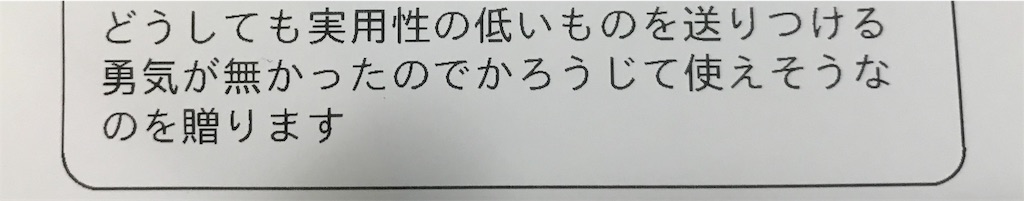 どうしても実用性の低いものを送りつける
勇気が無かったのでかろうじて使えそうな
のを贈ります